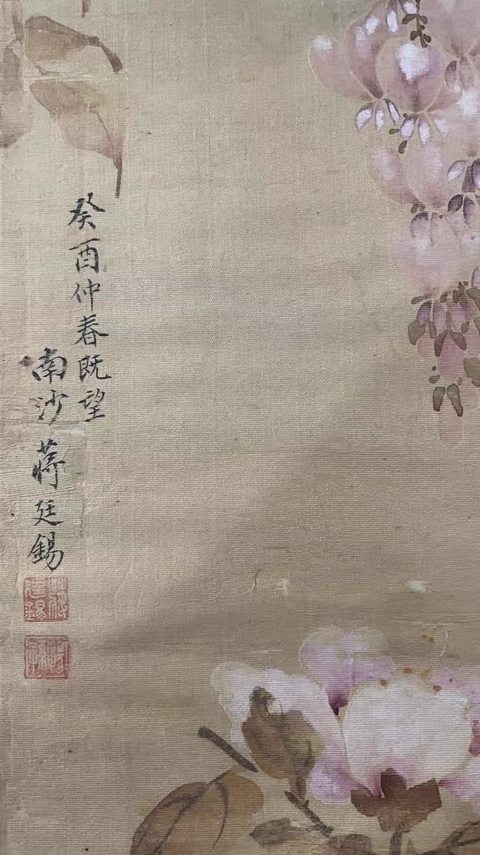 癸酉仲春既望
南沙蒋廷錫